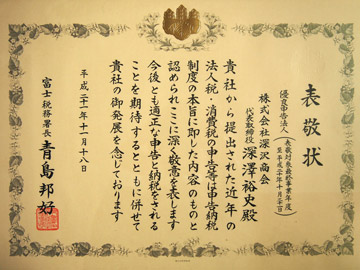 表敬状
優良申告法人
(表敬対象最終事業年度
至平成二十年十月三十一日)
株式会社深沢商会
代表取締役 深澤裕史殿
貴社から提出された近年の
法人税・消費税の申告等は申告納税
制度の本旨に即した内容のものと
認められここに深く敬意を表します
今後とも適正な申告と納税をされる
ことを期待するとともに併せて
貴社の御発展を念じております
平成二十一年十一月十八日
富士税務署長 青島邦好